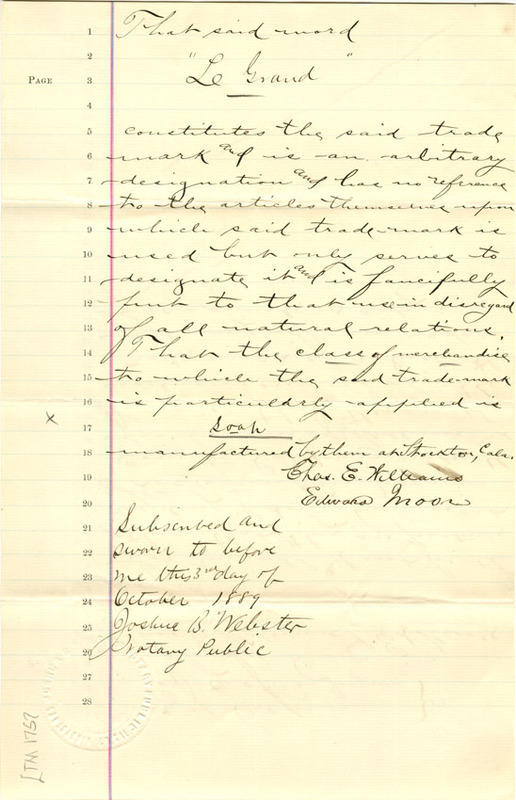 1 That said word
2
PAGE 3 "Le Grand"
4
5 constitutes the said trade
6 mark and is an arbitrary
7 designation and has no reference
8 to the articles themselves upon
9 which said trade-mark is
10 used but only serves to
11 designate it and is fancifully
12 put to that use in disregard
13 of all natural relations.
14 That the class of merchandise
15 to which the said trade-mark
16 is particularly applied is
x 17 Soap
18 manufactured by them at Stockton, Cala.
19 Chas. E. Williams
20 Edward Moore
21 Subscribed and
22 sworn to before
23 me this 3rd day of
24 October 1889
25 Joshua B. Webster
26 Notary Public
27
28
[TM 1757